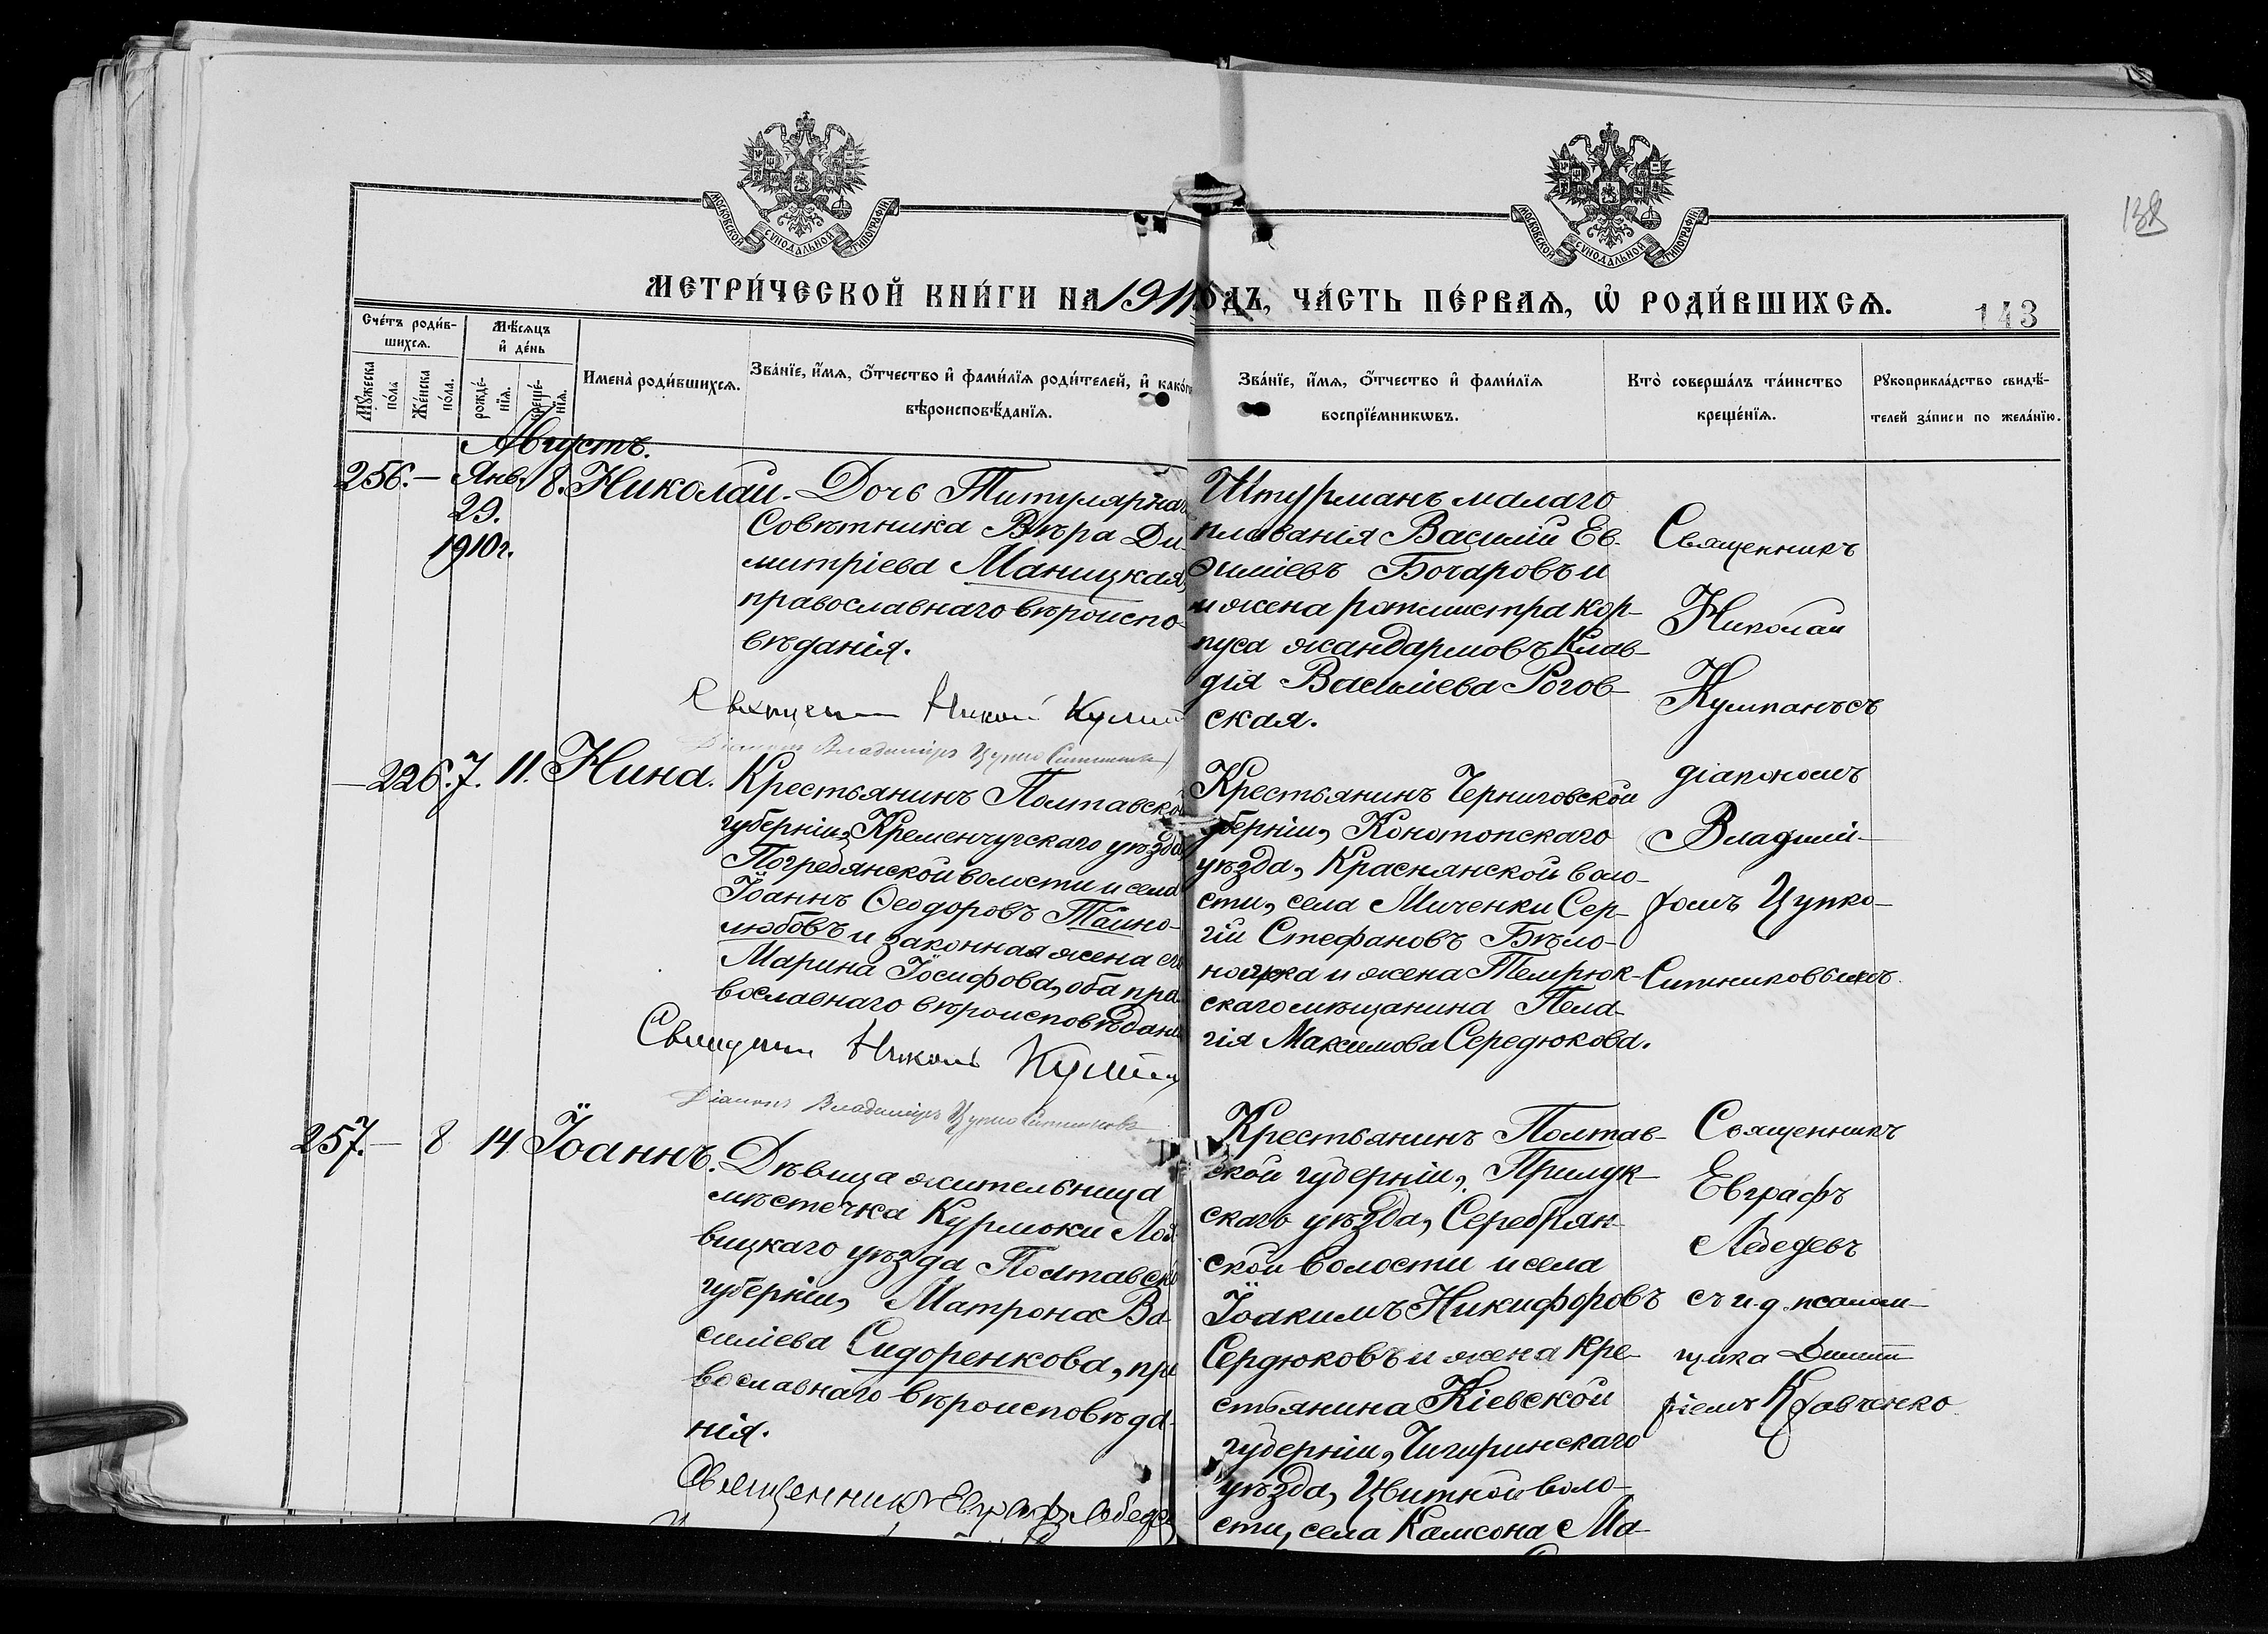 МОСКОВСКОЙ СѴНОДАЛЬНОЙ ТИПОГРАФІИ
МОСКОВСКОЙ СѴНОДАЛЬНОЙ ТИПОГРАФІИ
138
МЕТРИ́ЧЕСКОЙ КНИ́ГИ НА 1911 ГОДЪ, ЧА́СТЬ ПЕ́РВАѦ, Ѡ҆ РОДИ́ВШИХСѦ.
143
Сче́тъ роди́в-
шихсѧ.
Мѣ́сѧцъ
и҆ де́нь
Мꙋ́жеска
по́ла
Же́нска
по́ла.
рожде́-
нїѧ.
креще́-
нїѧ.
Имена̀ роди́вшихсѧ.
Зва́нїе, и҆́мѧ, ѻ҆́тчество и҆ фами́лїѧ роди́телей, и҆ како́гѡ
вѣроисповѣ́данїѧ.
Зва́нїе, и҆́мѧ, ѻ҆́тчество и҆ фами́лїѧ
воспрїе́мникѡвъ.
Кто̀ соверша́лъ та́инство
креще́нїѧ.
Рꙋкоприкла́дство свидѣ́-
телей за́писи по жела́нїю.
Августъ.
256. — Янв. 8. Николай.
29.
1910 г.
Дочь Титулярнаго
Совѣтника Вѣра Ди-
митріева Маницкая,
православнаго вѣроиспо-
вѣданія.
Священникъ Николай
Діаконъ Владимиръ Цупко Ситниковъ
Штурманъ малаго
плаванія Василій Ев-
ѳиміевъ Бочаровъ и
и жена ротмистра кор-
пуса жандармовъ Клав-
дія Васильева Рогов-
ская.
Священникъ
Николай
Кумпанъ съ
діакономъ
Владими-
ромъ Цупко-
Ситниковымъ.
— 226. 7. 11. Нина.
Крестьянинъ Полтавской
губерніи, Кременчугскаго уѣзда,
Погребянской волости и села
Іоаннъ Ѳеодоровъ Тайно-
любовъ и законная жена его
Марина Іосифова, оба пра-
вославнаго вѣроисповѣданія
Священникъ Николай
Діаконъ Владимиръ Цупко Ситниковъ
Крестьянинъ Черниговской
губерніи, Конотопскаго
уѣзда, Краснянской воло-
сти, села Миченки Сер-
гій Стефановъ Бѣло-
ножка и жена Темрюк-
скаго мѣщанина Пела-
гія Максимова Середюкова.
257. — 8 14 Іоаннъ.
Дѣвица жительница
мѣстечка Курмоки Лох-
вицкаго уѣзда Полтавской
губерніи, Матрона Ва-
силіева Сидоренкова, пра-
вославнаго вѣроисповѣда-
нія.
Священникъ Евграфъ Лебедевъ
Крестьянинъ Полтав-
ской губерніи, Прилук-
скаго уѣзда, Серебрян-
ской волости и села
Іоакимъ Никифоровъ
Сердюковъ и жена кре-
стьянина Кіевской
губерніи, Чигиринскаго
уѣзда, Цвитной воло-
сти, села Камсона Ма-
Священникъ
Евграфъ
Лебедевъ
съ и. д. псалом-
щика Димит-
ріемъ Кравченко